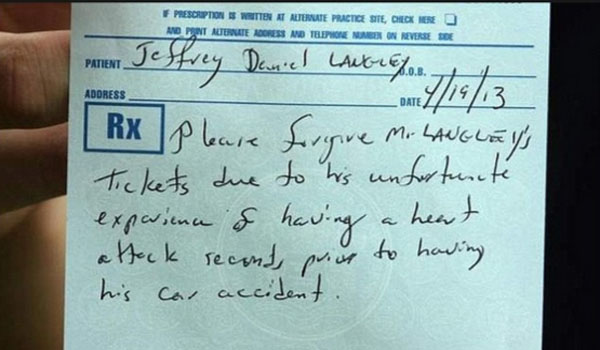 IF PRESCRIPTION IS WRITTEN AT ALTERNATE PRACTICE SITE, CHECK HERE
AND PRINT ALTERNATE ADDRESS AND TELEPHONE NUMBER ON REVERSE SIDE
PATIENT Jeffrey Daniel LANGLEY D.O.B.
ADDRESS DATE 4/19/13
Rx Please forgive Mr LANGLEY's
tickets due to his unfortunate
experience of having a heart
attack seconds prior to having
his car accident.